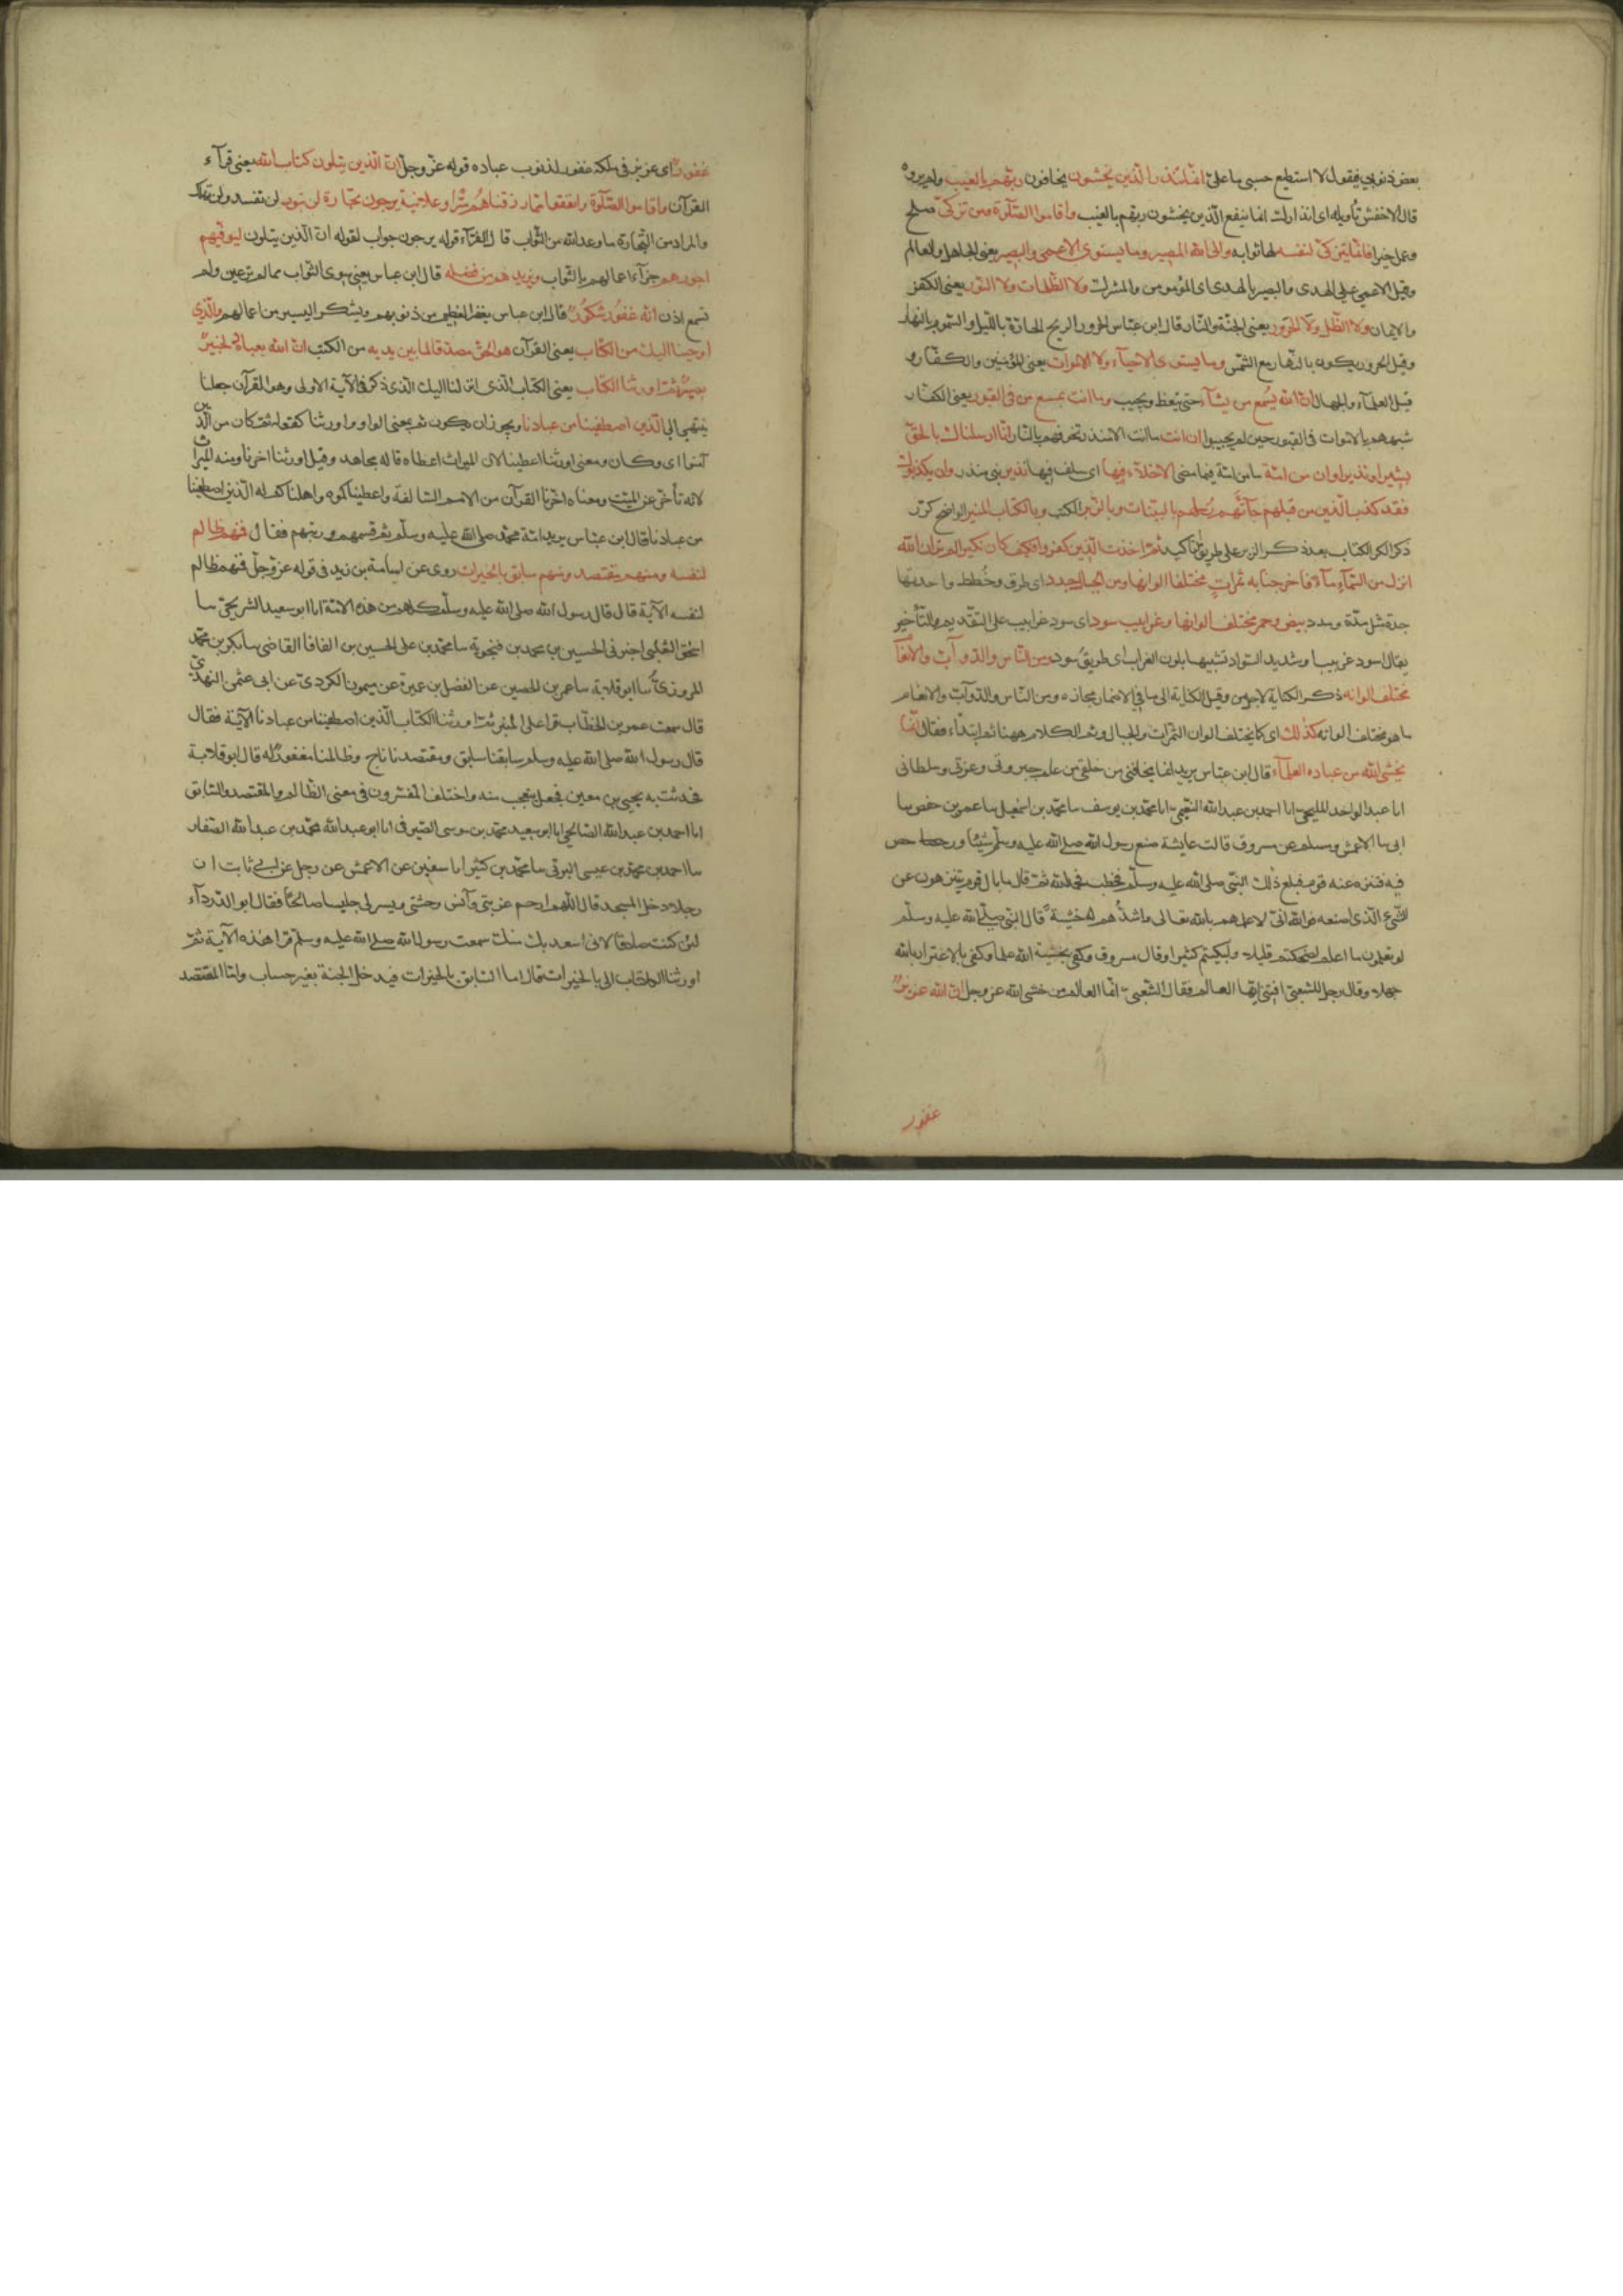 بعض ذنوبي فيقول لا استطيع حسبي ما علي انما تنذر الذين يخشون يخافون ربهم بالغيب ولم يروه
قال الاخفش تأويله اي انذارك انما ينفع الذين يخشون ربهم بالغيب واقاموا الصلوة ومن تزكى صلح
وعمل خيرا فانما يتزكى لنفسه لها ثوابه والى الله المصير وما يستوي الاعمى والبصير يعني الجاهل والعالم
وقيل الاعمى عن الهدى والبصير بالهدى اي المؤمن والمشرك ولا الظلمات ولا النور يعني الكفر
والايمان ولا الظل ولا الحرور يعني الجنة والنار قال ابن عباس الحرور الريح الحارة بالليل والسموم بالنهار
وقيل الحرور يكون بالنهار مع الشمس وما يستوي الاحياء ولا الاموات يعني المؤمنين والكفار و
قيل العلماء والجهال ان الله يسمع من يشاء حتى يتعظ ويجيب وما انت بمسمع من في القبور يعني الكفار
شبههم بالاموات في القبور حين لم يجيبوا ان انت ما انت الا نذير تخوفهم بالنار انا ارسلناك بالحق
بشيرا ونذيرا وان من امة ما من امة فيما مضى الا خلا فيها اي سلف فيها نذير نبي منذر وان يكذبوك
فقد كذب الذين من قبلهم جآتهم رسلهم بالبينات وبالزبر الكتب وبالكتاب المنير الواضح كرر
ذكر الكتاب بعد ذكر الزبر على طريق التأكيد ثم اخذت الذين كفروا فكيف كان نكير الم تر ان الله
انزل من السماء ماء فاخرجنا به ثمرات مختلفا الوانها ومن الجبال جدد اي طرق وخطط واحدتها
جدة مثل مدة ومدد بيض وحمر مختلف الوانها وغرابيب سود اي سود غرابيب على التقديم والتأخير
يقال اسود غربيب اي شديد السواد تشبيها بلون الغراب اي طريق سود ومن الناس والدوآب والانعآ
مختلف الوانه ذكر الكناية لاجل من وقيل الكناية الى ما في الاضمار مجازه ومن الناس والدوآب والانعام
ما هو مختلف الوانه كذلك اي كما يختلف الوان الثمرات والجبال وتم الكلام ههنا ثم ابتداء فقال انما
يخشى الله من عباده العلمآء قال ابن عباس يريد انما يخافني من خلقي من علم جبروتي وعزتي وسلطاني
انا عبد الواحد المليحي انا احمد بن عبد الله النعيمي انا محمد بن يوسف سا محمد بن اسمعيل سا عمر بن حفص سا
ابي سا الاعمش سا مسلم عن مسروق قالت عايشة صنع رسول الله صلى الله عليه وسلم شيئا ورخص
فيه فتنزه عنه قوم فبلغ ذلك النبي صلى الله عليه وسلم فخطب فحمد الله ثم قال ما بال قوم يتنزهون عن
الشيء الذي اصنعه فوالله اني لاعلمهم بالله تعالى واشدهم له خشية قال النبي صلى الله عليه وسلم
لو تعلمون ما اعلم لضحكتم قليلا ولبكيتم كثيرا وقال مسروق وكفى بخشية الله علما وكفى بالاغترار بالله
جهلا وقال رجل للشعبي افتني ايها العالم فقال الشعبي انما العالم من خشي الله عز وجل ان الله عزيز
غفور
غفور اي عزيز في ملكه غفور لذنوب عباده قوله عز وجل ان الذين يتلون كتاب الله يعني قرآء
القرآن واقاموا الصلوة وانفقوا مما رزقناهم سرا وعلانية يرجون تجارة لن تبور لن تفسد ولن تهلك
والمراد من التجارة ما وعد الله من الثواب قال الفرآء قوله يرجون جواب لقوله ان الذين يتلون ليوفيهم
اجورهم جزآء اعمالهم بالثواب ويزيدهم من فضله قال ابن عباس يعني سوى الثواب مما لم تر عين ولم
تسمع اذن انه غفور شكور قال ابن عباس يغفر العظيم من ذنوبهم ويشكر اليسير من اعمالهم والذي
اوحينا اليك من الكتاب يعني القرآن هو الحق مصدقا لما بين يديه من الكتب ان الله بعباده لخبير
بصير ثم اورثنا الكتاب يعني الكتاب الذي انزلنا اليك الذي ذكر في الآية الاولى وهو القرآن جعلنا
ينتهي الى الذين اصطفينا من عبادنا ويجوز ان يكون ثم بمعنى الواو اي واورثنا كقوله ثم كان من الذين
آمنوا اي وكان ومعنى اورثنا اعطينا لان الميراث اعطاء قاله مجاهد وقيل اورثنا اخرنا ومنه الميراث
لانه تأخر عن الميت ومعناه اخرنا القرآن من الامم السالفة واعطيناكموه واهلناكم له الذين اصطفينا
من عبادنا قال ابن عباس يريد امة محمد صلى الله عليه وسلم ثم قسمهم ورتبهم فقال فمنهم ظالم
لنفسه ومنهم مقتصد ومنهم سابق بالخيرات روي عن اسامة بن زيد في قوله عز وجل فمنهم ظالم
لنفسه الآية قال قال رسول الله صلى الله عليه وسلم كلهم من هذه الامة انا ابو سعيد الشريحي سا
اسحق الثعلبي اخبرني الحسين بن محمد بن فنجويه سا محمد بن علي الحسين بن القاضي سا بكر بن محمد
المروزي سا ابو قلابة سا عمرو بن الحصين عن الفضل بن عميرة عن ميمون الكردي عن ابي عثمن النهدي
قال سمعت عمر بن الخطاب قرا على المنبر ثم اورثنا الكتاب الذين اصطفينا من عبادنا الآية فقال
قال رسول الله صلى الله عليه وسلم سابقنا سابق ومقتصدنا ناج وظالمنا مغفور له قال ابو قلابة
فحدثت به يحيى بن معين فجعل يتعجب منه واختلف المفسرون في معنى الظالم والمقتصد والسابق
انا احمد بن عبد الله الصالحي انا ابو سعيد محمد بن موسى الصيرفي انا ابو عبد الله محمد بن عبد الله الصفار
سا احمد بن محمد بن عيسى البرتي سا محمد بن كثير انا سفين عن الاعمش عن رجل عن ابي ثابت ان
رجلا دخل المسجد قال اللهم ارحم غربتي وآنس وحشتي ويسر لي جليسا صالحا فقال ابو الدردآء
لئن كنت صادقا لانا اسعد بك منك سمعت رسول الله صلى الله عليه وسلم قرا هذه الآية ثم
اورثنا الكتاب الى بالخيرات قال اما السابق بالخيرات فيدخل الجنة بغير حساب واما المقتصد